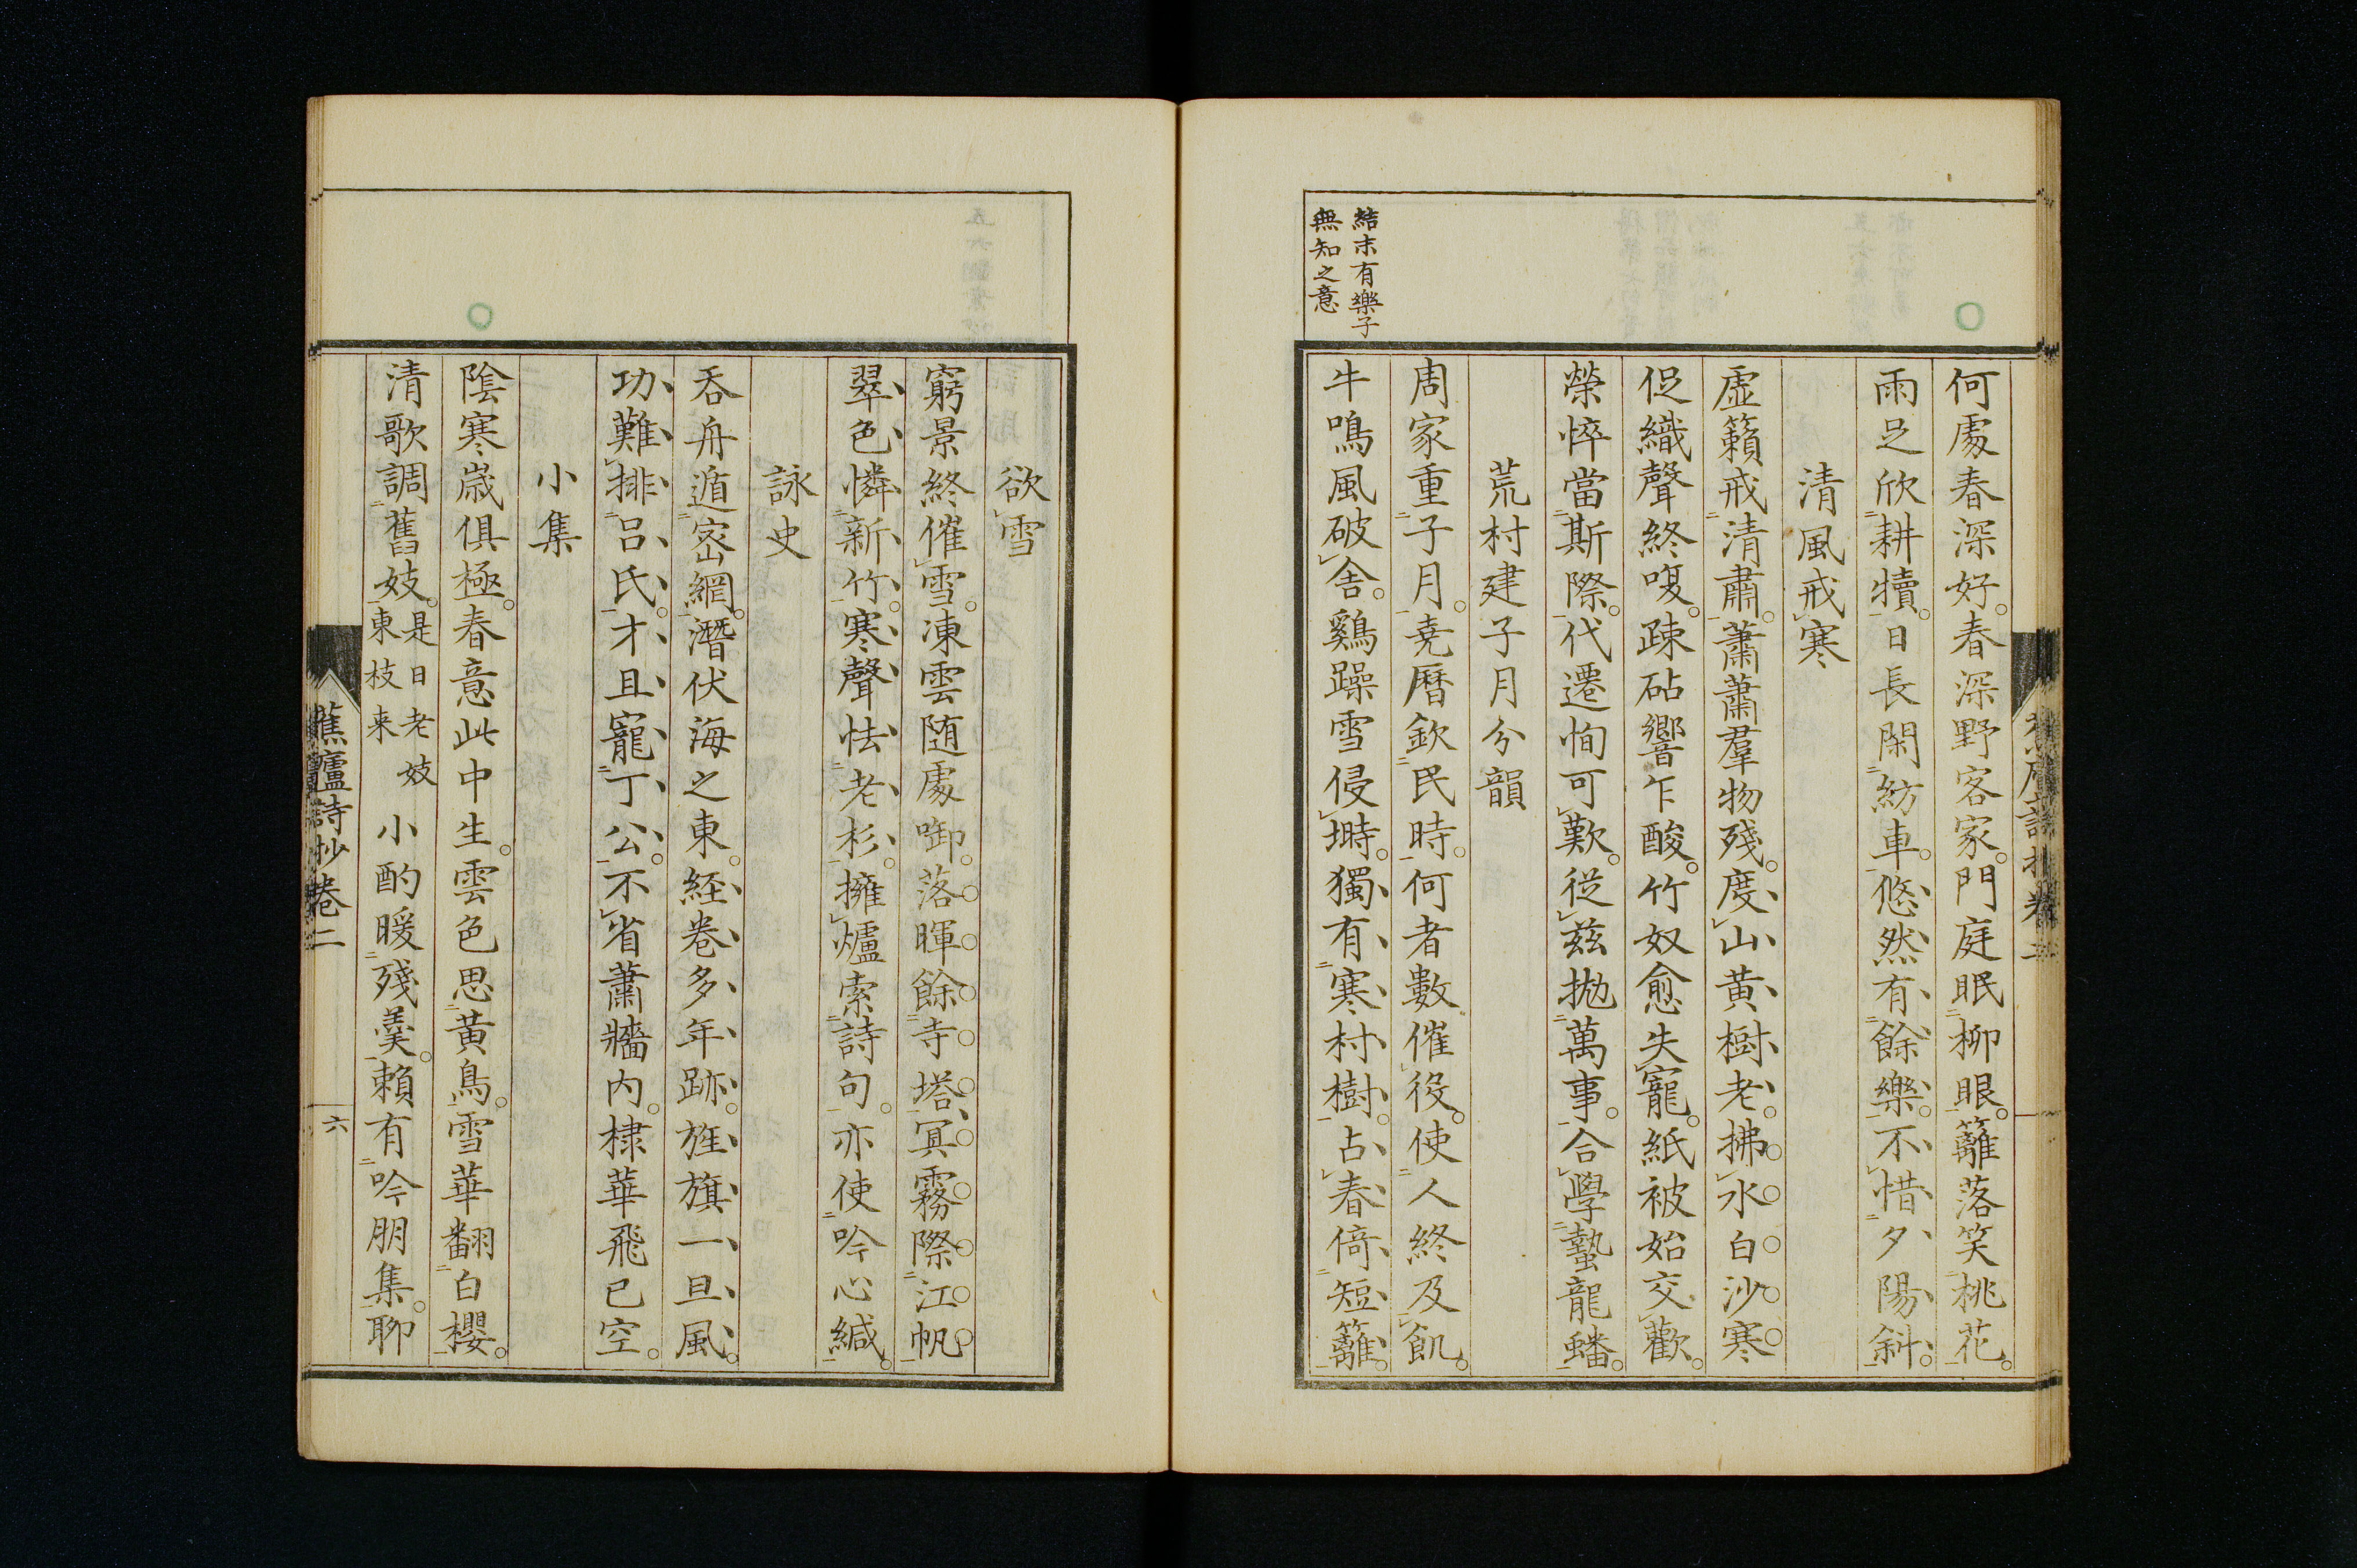 何處春深好春深野客家門庭眠柳眼籬落笑桃花
雨足欣耕犢日長閑紡車悠然有餘樂不惜夕陽斜
清風戒寒
虛籟戒清肅蕭蕭羣物殘度山黄樹老拂水白沙寒
促織聲終嗄疎砧響乍酸竹奴愈失寵紙被始交歡
榮悴當斯際代遷恂可歎從茲抛萬事合學蟄龍蟠
荒村建子月分韻
周家重子月堯曆欽民時何者數催役使人終及飢
牛鳴風破舍鷄躁雪侵塒獨有寒村樹占春倚短籬
結末有樂子
無知之意
欲雪
窮景終催雪凍雲随處啣落暉餘寺塔冥霧際江帆
翠色憐新竹寒聲怯老杉擁爐索詩句亦使吟心緘
詠史
呑舟遁宻網潛伏海之東経卷多年跡旌旗一旦風
功難排呂氏才且寵丁公不省蕭牆内棣華飛已空
小集
陰寒嵗俱極春意此中生雲色思黄鳥雪華翻白櫻
清歌調舊妓是日老妓東枝来小酌暖殘羹賴有吟朋集聊
蕉廬詩抄卷二
六